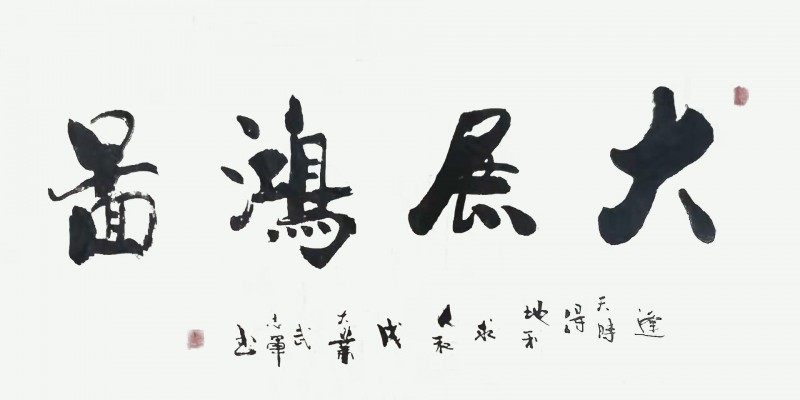 大展鴻圖
逢天時得地利求人和成大業武志軍书